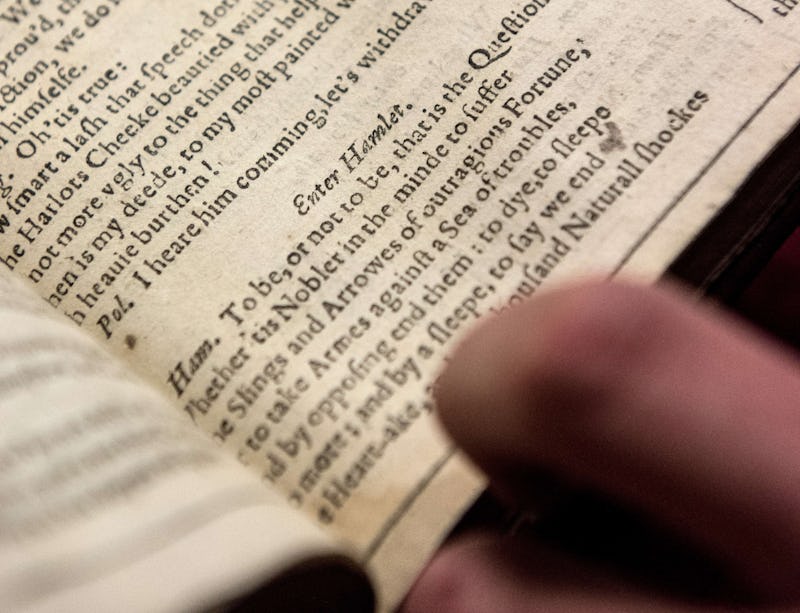 We
prou'd,
ction, we do
himſelfe.
Oh 'tis true:
ſmart a laſh that ſpeech
he Harlots Cheeke beautied with
not more vgly to the thing that
is my deede, to my moſt painted
heauie burthen!
Pol. I heare him comming, let's
Enter Hamlet.
Ham. To be, or not to be, that is the Queſtion
Whether 'tis Nobler in the minde to ſuffer
Slings and Arrowes of outragious Fortune,
to take Armes againſt a Sea of troubles,
by oppoſing end them: to dye, to ſleepe
more; and by a ſleepe, to ſay we end
Heart-ake, houſand Naturall ſhockes